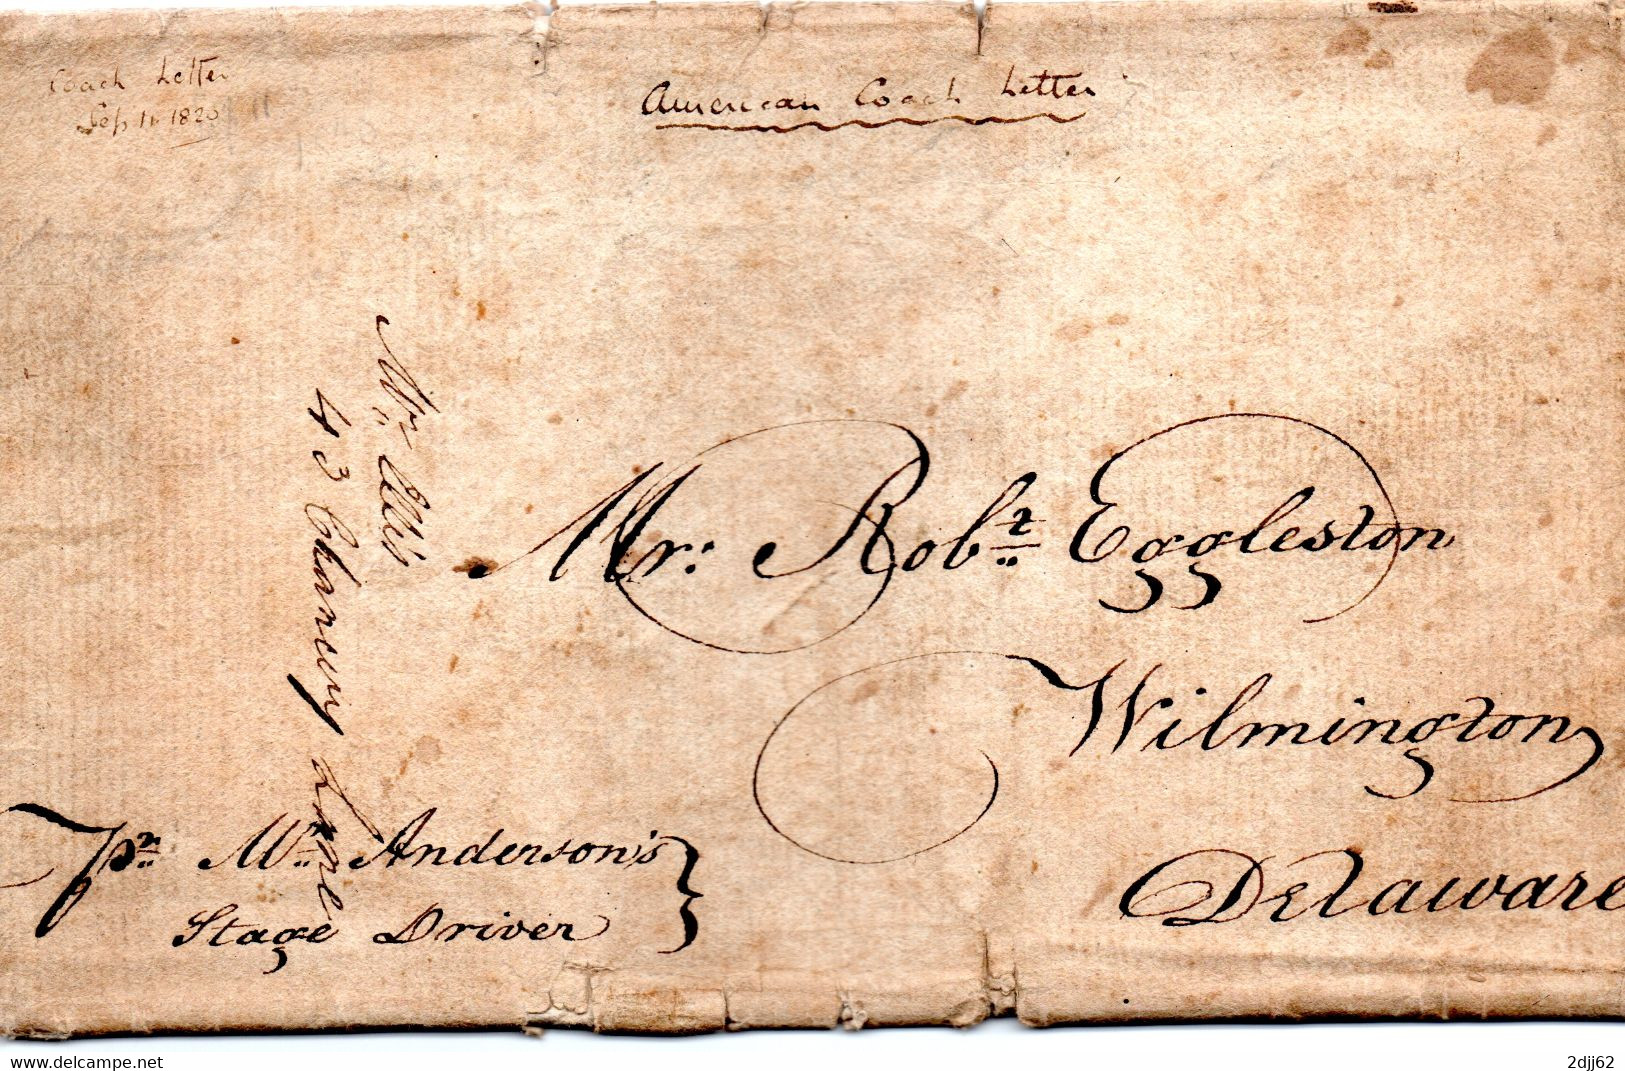 Coach Letter
Sep 11 1820
American Coach Letter
Mr. Ellis
43 Chancery Lane
Mr: Robt. Eggleston
Wilmington
Delaware
pr. Mr. Anderson's
Stage Driver
www.delcampe.net
2djj62